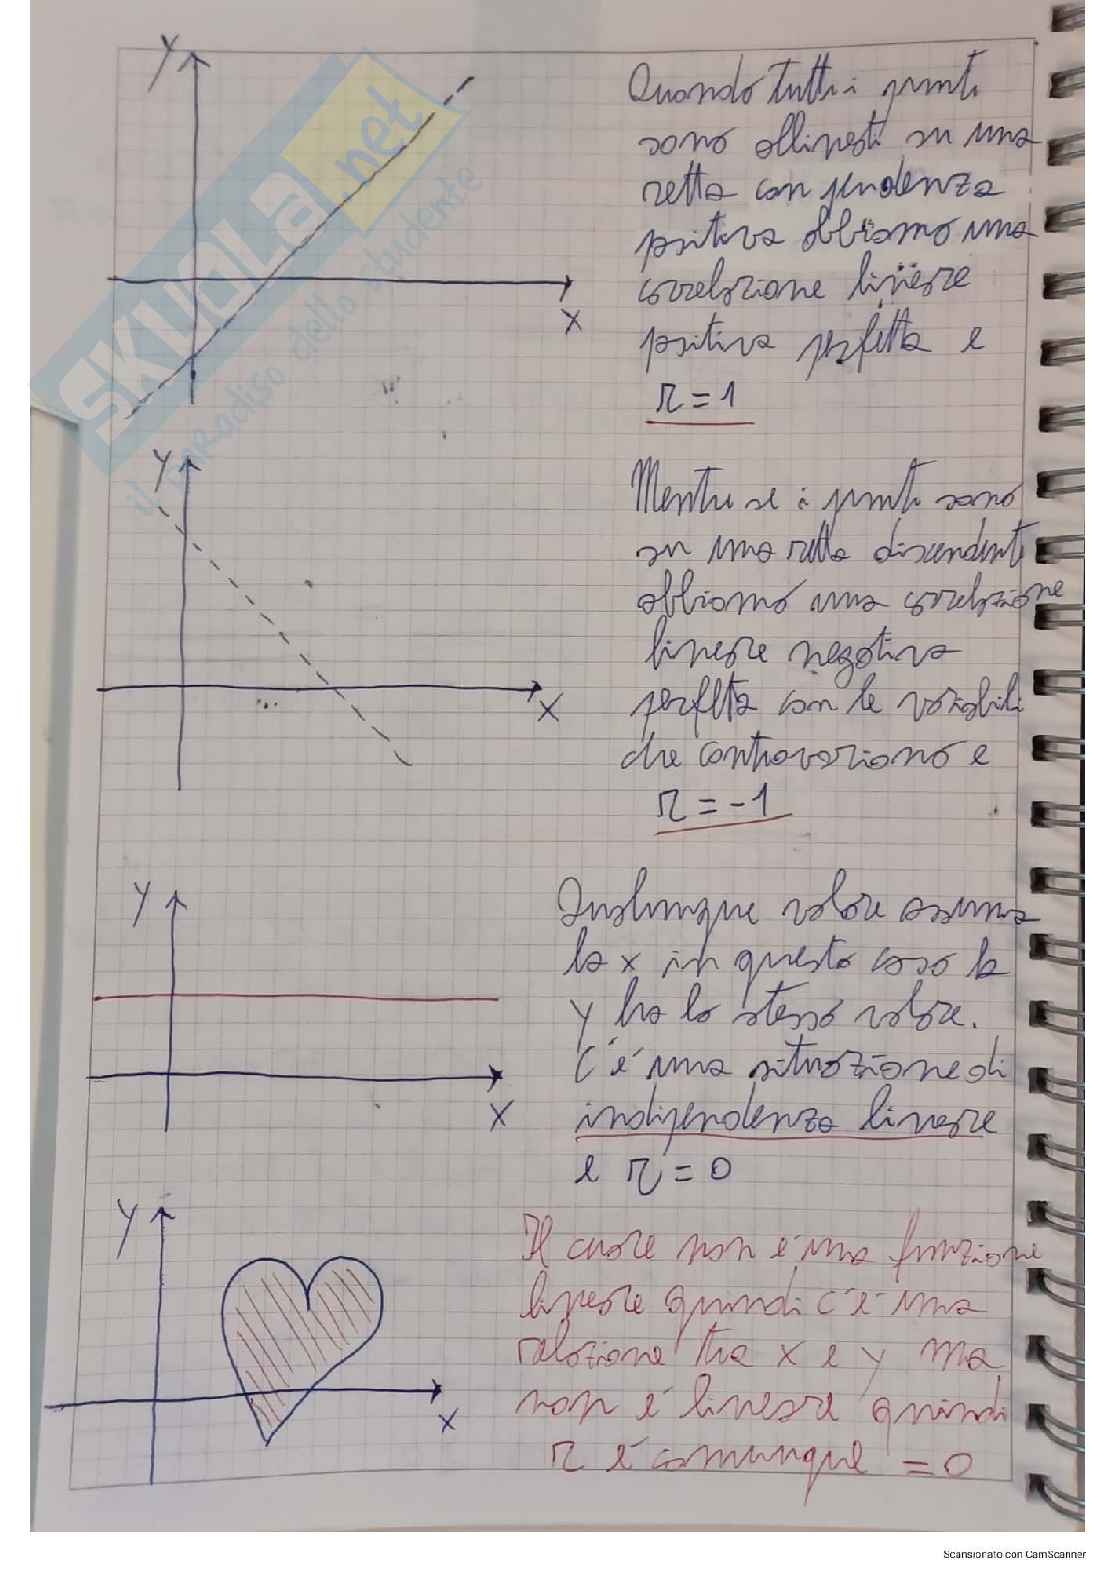 Y
Quando tutti i punti
sono allineati su una
retta con pendenza
positiva abbiamo una
correlazione lineare
X
positiva perfetta e
r = 1
SKUOLA.net
il paradiso dello studente
Y
Mentre se i punti sono
su una retta discendente
abbiamo una correlazione
lineare negativa
X
perfetta con le variabili
che controvariano e
r = -1
Y
Qualunque valore assuma
la x in questo caso la
y ha lo stesso valore.
C'è una situazione di
X
indipendenza lineare
e r = 0
Y
Il cuore non è una funzione
lineare quindi c'è una
relazione tra x e y ma
X
non è lineare quindi
r è comunque = 0
Scansionato con CamScanner